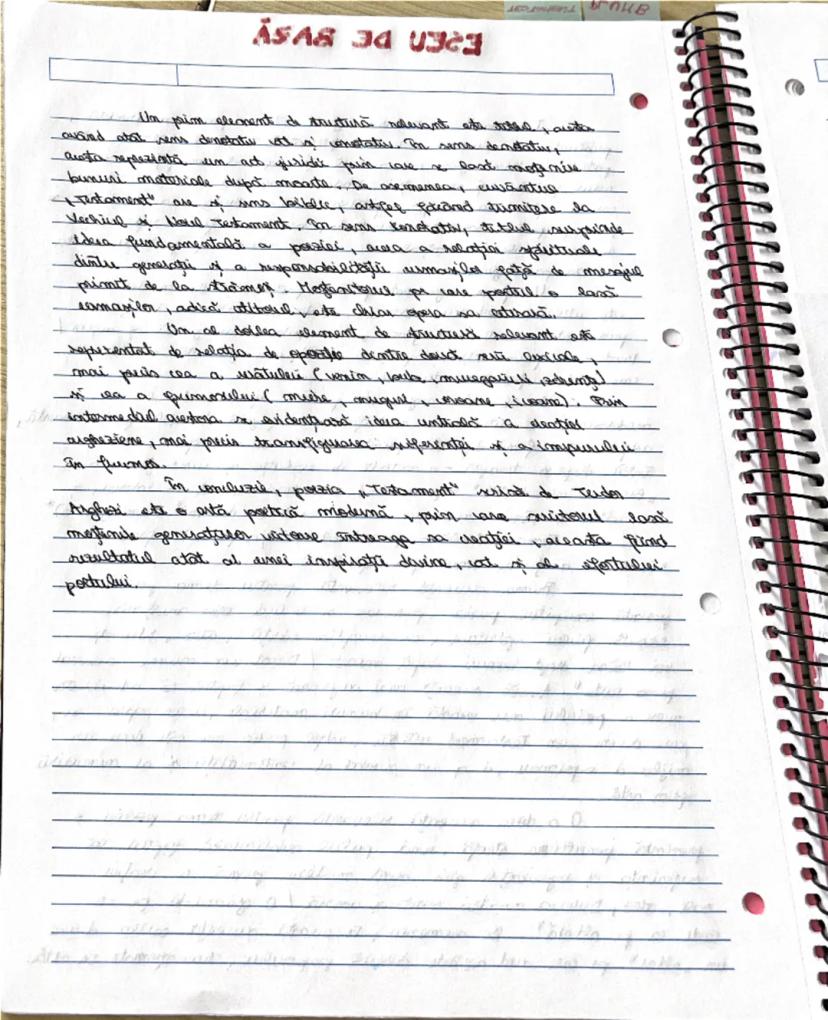 ESEU DE BASĂ
Un prim element de structură relevant este titlul, acesta
având atât sens denotativ cât și conotativ. În sens denotativ,
acesta reprezintă un act juridic prin care se lasă moștenire
bunuri materiale după moarte. De asemenea, cuvântul
„Testament" are și sens biblic, astfel făcând trimitere la
Vechiul și Noul Testament. În sens conotativ, titlul surprinde
ideea fundamentală a poeziei, aceea a relației spirituale
dintre generații și a responsabilității urmașilor față de mesajul
primit de la strămoși. Moștenitorul pe care poetul o lasă
urmașilor, adică cititorul, este chiar opera sa literară.
Un al doilea element de structură relevant este
reprezentat de relația de opoziție dintre două serii lexicale,
mai precis cea a urâtului (venin, bube, mucegaiuri, zdrențe)
și cea a frumosului (miere, muguri, coroane, icoane). Prin
intermediul acestora se evidențiază ideea centrală a creației
argheziene, mai precis transfigurarea suferenței și a impurului
în frumos.
În concluzie, poezia „Testament" scrisă de Tudor
Arghezi este o artă poetică modernă, prin care scriitorul lasă
moștenire generațiilor viitoare întreaga sa creației, aceasta fiind
rezultatul atât al unei inspirații divine, cât și al efortului
poetului.